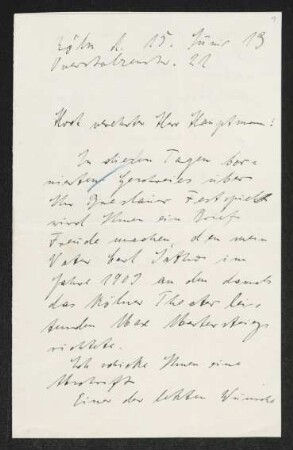 Köln d. 15. Juni 13
Overstolzenstr. 21
Hoch verehrter Herr Hauptmann!
In diesen Tagen bor-
nierten Geschreies über
Ihr Breslauer Festspiel
wird Ihnen ein Brief
Freude machen, den mein
Vater Carl Jatho im
Jahre 1903 an den damals
das Kölner Theater lei-
tenden Max Martersteig
richtete.
Ich schicke Ihnen eine
Abschrift
Einer der letzten Wünsche